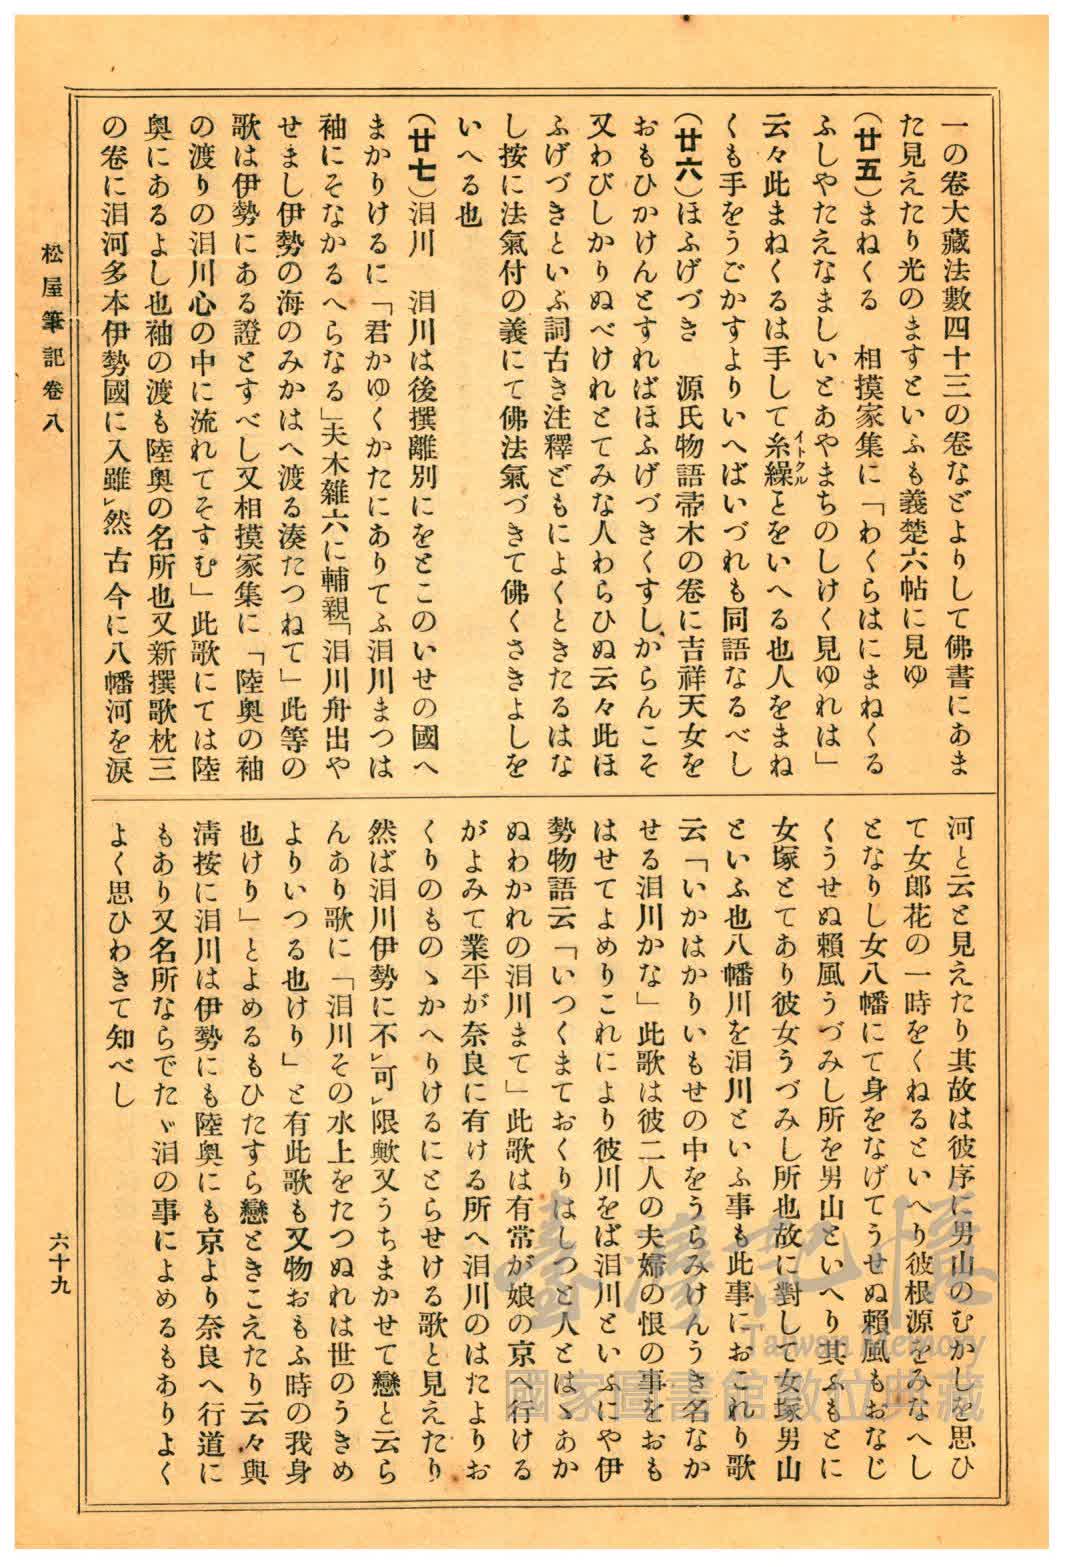 一の卷大藏法數四十三の卷などよりして佛書にあま
た見えたり光のますといふも義楚六帖に見ゆ
(廿五)まねくる　相摸家集に「わくらはにまねくる
ふしやたえなましいとあやまちのしけく見ゆれは」
云々此まねくるは手して糸繰イトクルとをいへる也人をまね
くも手をうごかすよりいへばいづれも同語なるべし
(廿六)ほふげづき　源氏物語帚木の卷に吉祥天女を
おもひかけんとすればほふげづきくすしからんこそ
又わびしかりぬべけれとてみな人わらひぬ云々此ほ
ふげづきといふ詞古き注釋どもによくときたるはな
し按に法氣付の義にて佛法氣づきて佛くさきよしを
いへる也
(廿七)泪川　泪川は後撰離別にをとこのいせの國へ
まかりけるに「君かゆくかたにありてふ泪川まつは
袖にそなかるへらなる」夫木雜六に輔親「泪川舟出や
せまし伊勢の海のみかはへ渡る湊たつねて」此等の
歌は伊勢にある證とすべし又相摸家集に「陸奧の袖
の渡りの泪川心の中に流れてそすむ」此歌にては陸
奧にあるよし也袖の渡も陸奧の名所也又新撰歌枕三
の卷に泪河多本伊勢國に入雖レ然古今に八幡河を淚
河と云と見えたり其故は彼序に男山のむかしを思ひ
て女郎花の一時をくねるといへり彼根源をみなへし
となりし女八幡にて身をなげてうせぬ賴風もおなじ
くうせぬ賴風うづみし所を男山といへり其ふもとに
女塚とてあり彼女うづみし所也故に對して女塚男山
といふ也八幡川を泪川といふ事も此事におこれり歌
云「いかはかりいもせの中をうらみけんうき名なか
せる泪川かな」此歌は彼二人の夫婦の恨の事をおも
はせてよめりこれにより彼川をば泪川といふにや伊
勢物語云「いつくまておくりはしつと人とはゝあか
ぬわかれの泪川まて」此歌は有常が娘の京へ行ける
がよみて業平が奈良に有ける所へ泪川のはたよりお
くりのものゝかへりけるにとらせける歌と見えたり
然ば泪川伊勢に不レ可レ限歟又うちまかせて戀と云ら
んあり歌に「泪川その水上をたつぬれは世のうきめ
よりいつる也けり」と有此歌も又物おもふ時の我身
也けり」とよめるもひたすら戀ときこえたり云々與
淸按に泪川は伊勢にも陸奧にも京より奈良へ行道に
もあり又名所ならでたゞ泪の事によめるもありよく
よく思ひわきて知べし
松屋筆記卷八
六十九
臺灣記憶
Taiwan Memory
國家圖書館數位典藏